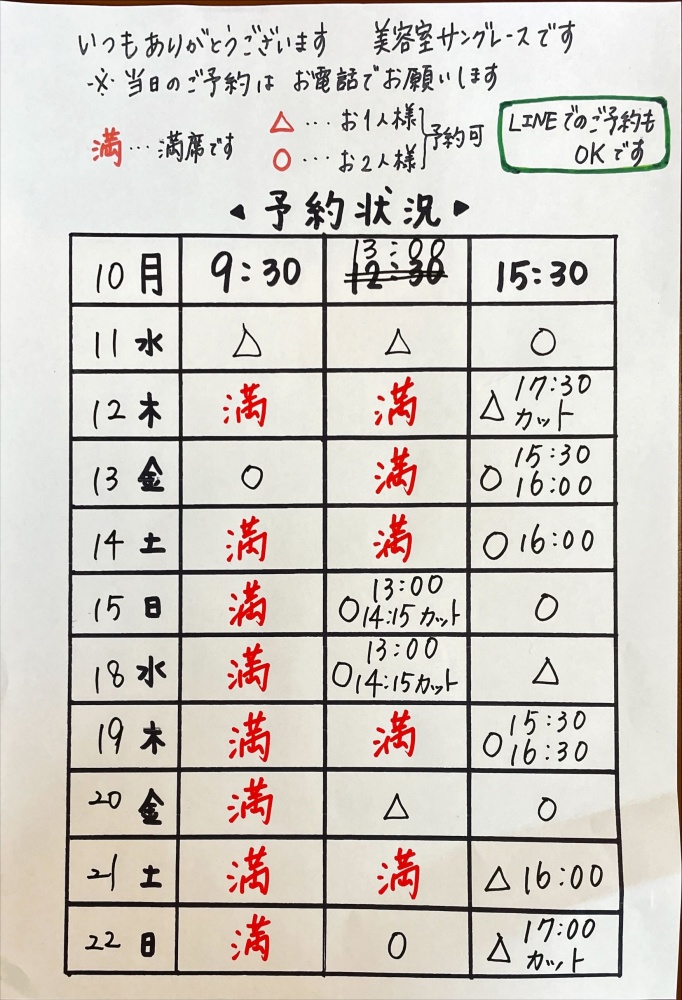 いつもありがとうございます 美容室サングレースです
※当日のご予約は お電話でお願いします
満…満席です
△…お1人様
○…お2人様
予約可
LINEでのご予約も
OKです
◀予約状況▶
10月 9:30 13:00 12:30 15:30
11 水 △ △ ○
12 木 満 満 △ 17:30 カット
13 金 ○ 満 ○ 15:30 16:00
14 土 満 満 ○ 16:00
15 日 満 ○ 13:00 14:15 カット ○
18 水 満 ○ 13:00 14:15 カット △
19 木 満 満 ○ 15:30 16:30
20 金 満 △ ○
21 土 満 満 △ 16:00
22 日 満 ○ △ 17:00 カット